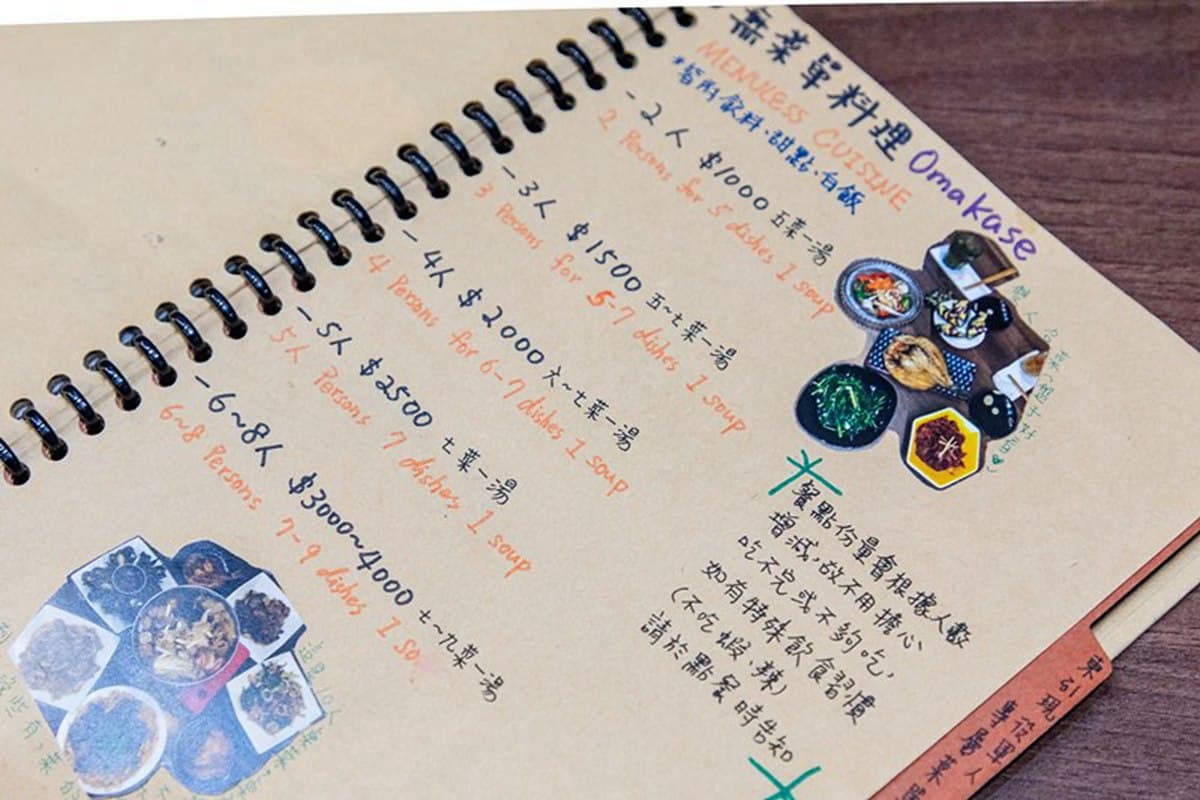 無菜單料理 Omakase
MENULESS CUISINE
*皆附飲料、甜點、白飯
-2人 $1000 五菜一湯
2 Persons for 5 dishes 1 soup
-3人 $1500 五~七菜一湯
3 Persons for 5-7 dishes 1 soup
-4人 $2000 六~七菜一湯
4 Persons for 6-7 dishes 1 soup
-5人 $2500 七菜一湯
5人 Persons 7 dishes 1 soup
-6~8人 $3000~4000 七~九菜一湯
6~8 Persons 7-9 dishes 1 so
餐點份量會根據人數
增減,故不用擔心
吃不完或不夠吃,
如有特殊飲食習慣
(不吃蝦、辣)
請於點餐時告知
這是10人
東引現役軍人
專屬菜